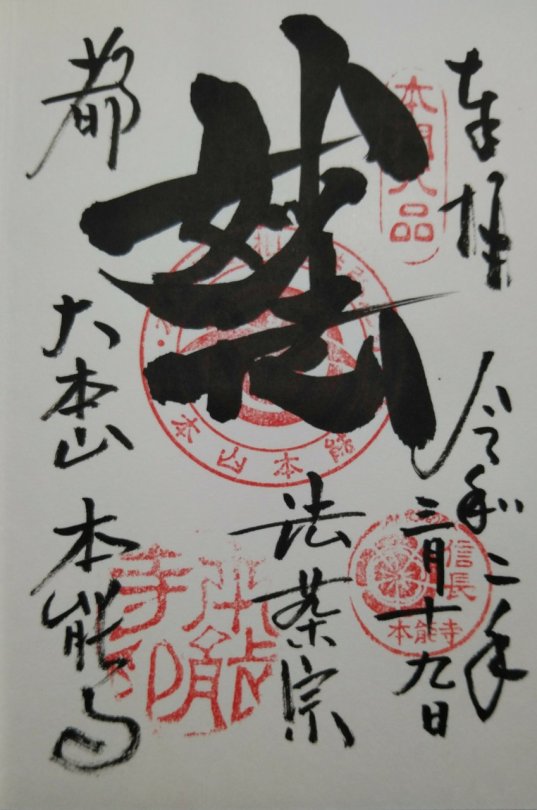 奉拝
令和二年
三月十九日
本門八品
信長
本能寺
妙法
法華宗
都
大本山 本能寺
本能寺印